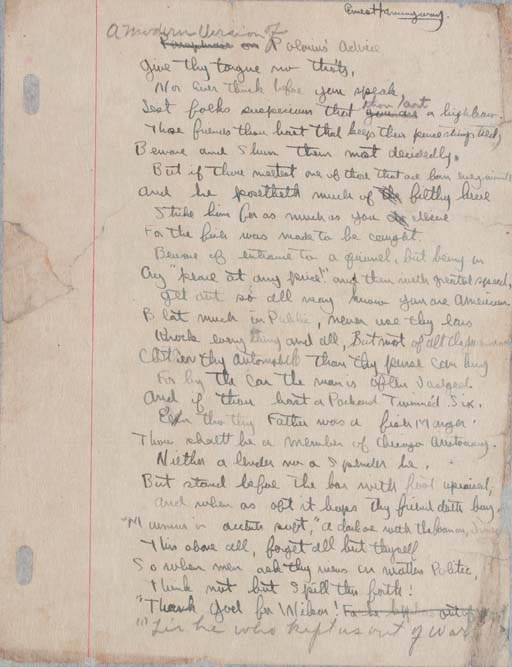 Ernest Hemingway.
A modern Version of
Paraphrase on Polonius' Advice
Give thy tongue no thots,
Nor ever think before you speak
Lest folks suspicion that thou art a highbrow.
Those friends thou hast that keep their purse strings tied,
Beware and Shun them most decidedly.
But if thou meetest one of those that are born every minute
And he possesseth much of filthy lucre
Strike him for as much as you
For the fish was made to be caught.
Beware of entrance to a quarrel, but being in
Cry "peace at any price!" and then with greatest speed,
Get out so all may know you are American
Blat much in Public, never use thy ears
Knock everything and all, But most of all the
thy automobile than thy purse can buy
For by the car the man is often Judged.
And if thou hast a Packard Twinned Six.
E'en tho thy Father was a fish Monger
Thou shalt be a member of Chicago Aristocracy.
Niether a lender nor a Spender be.
But stand before the bar with foot upraised,
And when as oft it haps thy friend doth buy.
"Mine is a", a dark one with the
This above all, forget all but thyself
So when men ask thy views on matters Politic,
Think not but Spill this forth!
"Thank God for Wilson!
"Tis he who kept us out of War